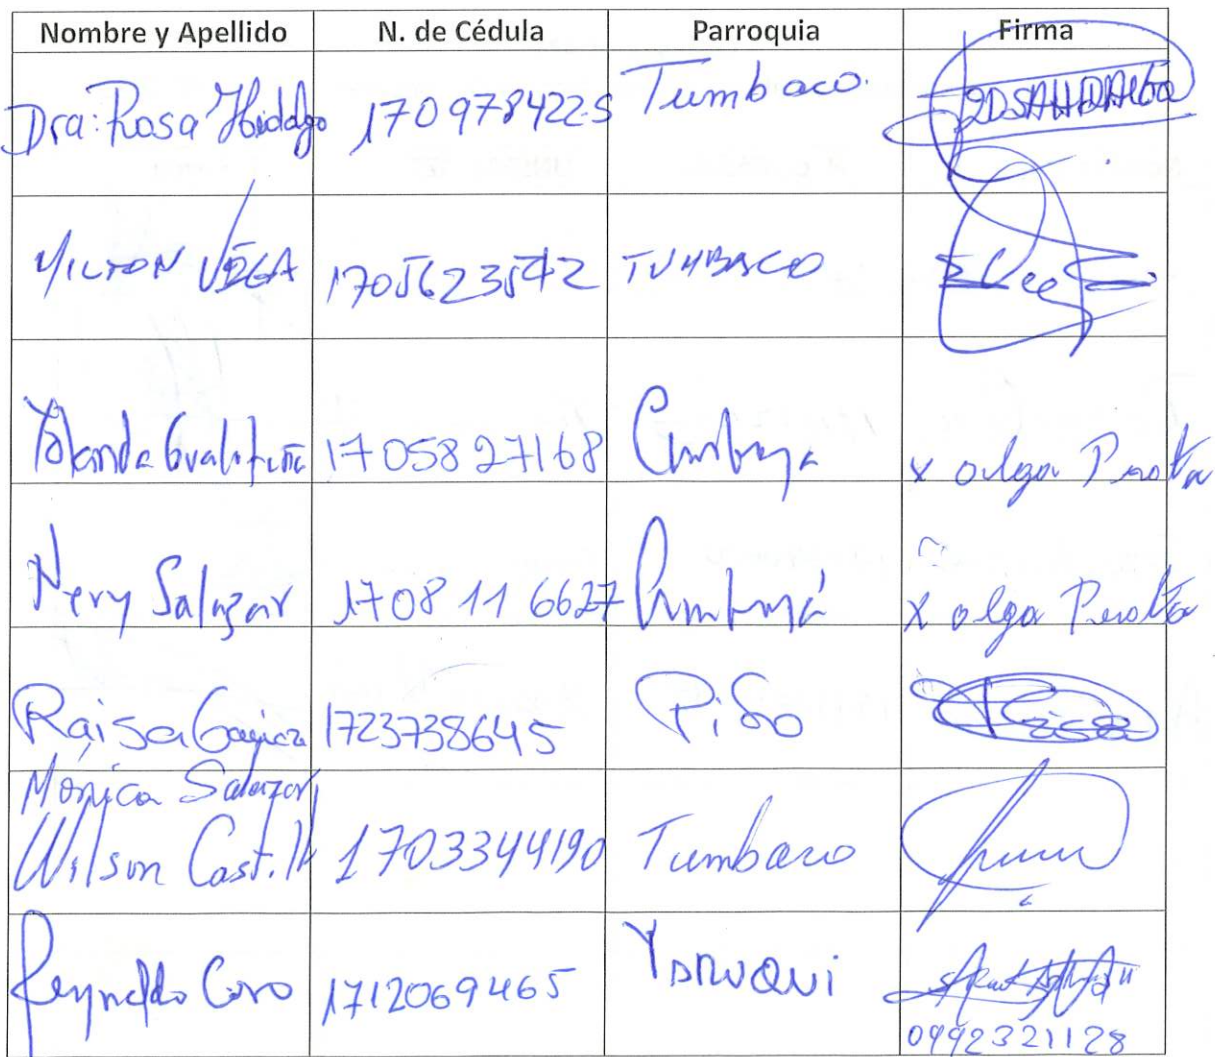 Nombre y Apellido N. de Cédula Parroquia Firma
Dra: Rosa Hidalgo 1709784225 Tumbaco. ROSA HIDALGO
MILTON VEGA 1705623542 TUMBACO
Yolanda 1705827168 Cumbaya x olga Peralta
Nery Salazar 1708116627 Cumbayá x olga Peralta
Raisa 1723738645 Pifo Raisa
Mónica Salazar
Wilson Castillo 1703344190 Tumbaco
Reynaldo Caro 1712069465 YARUQUI
0992321128